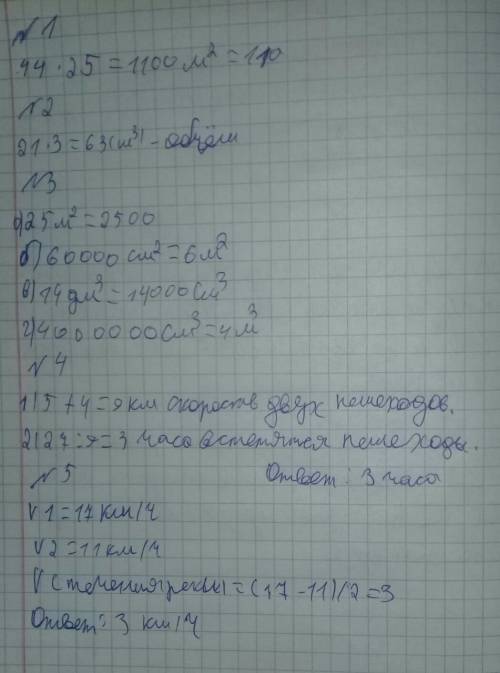 №1
44 · 25 = 1100 м² = 110
№2
21 · 3 = 63 (м³) - объём
№3
а) 25 м² = 2500
б) 60000 см² = 6 м²
в) 14 дм³ = 14000 см³
г) 4000000 см³ = 4 м³
№4
1) 5 + 4 = 9 км скорость двух пешеходов.
2) 27 : 9 = 3 часа встетятся пешеходы.
Ответ: 3 часа
№5
V1 = 17 км/ч
V2 = 11 км/ч
V (течения реки) = (17 - 11)/2 = 3
Ответ: 3 км/ч